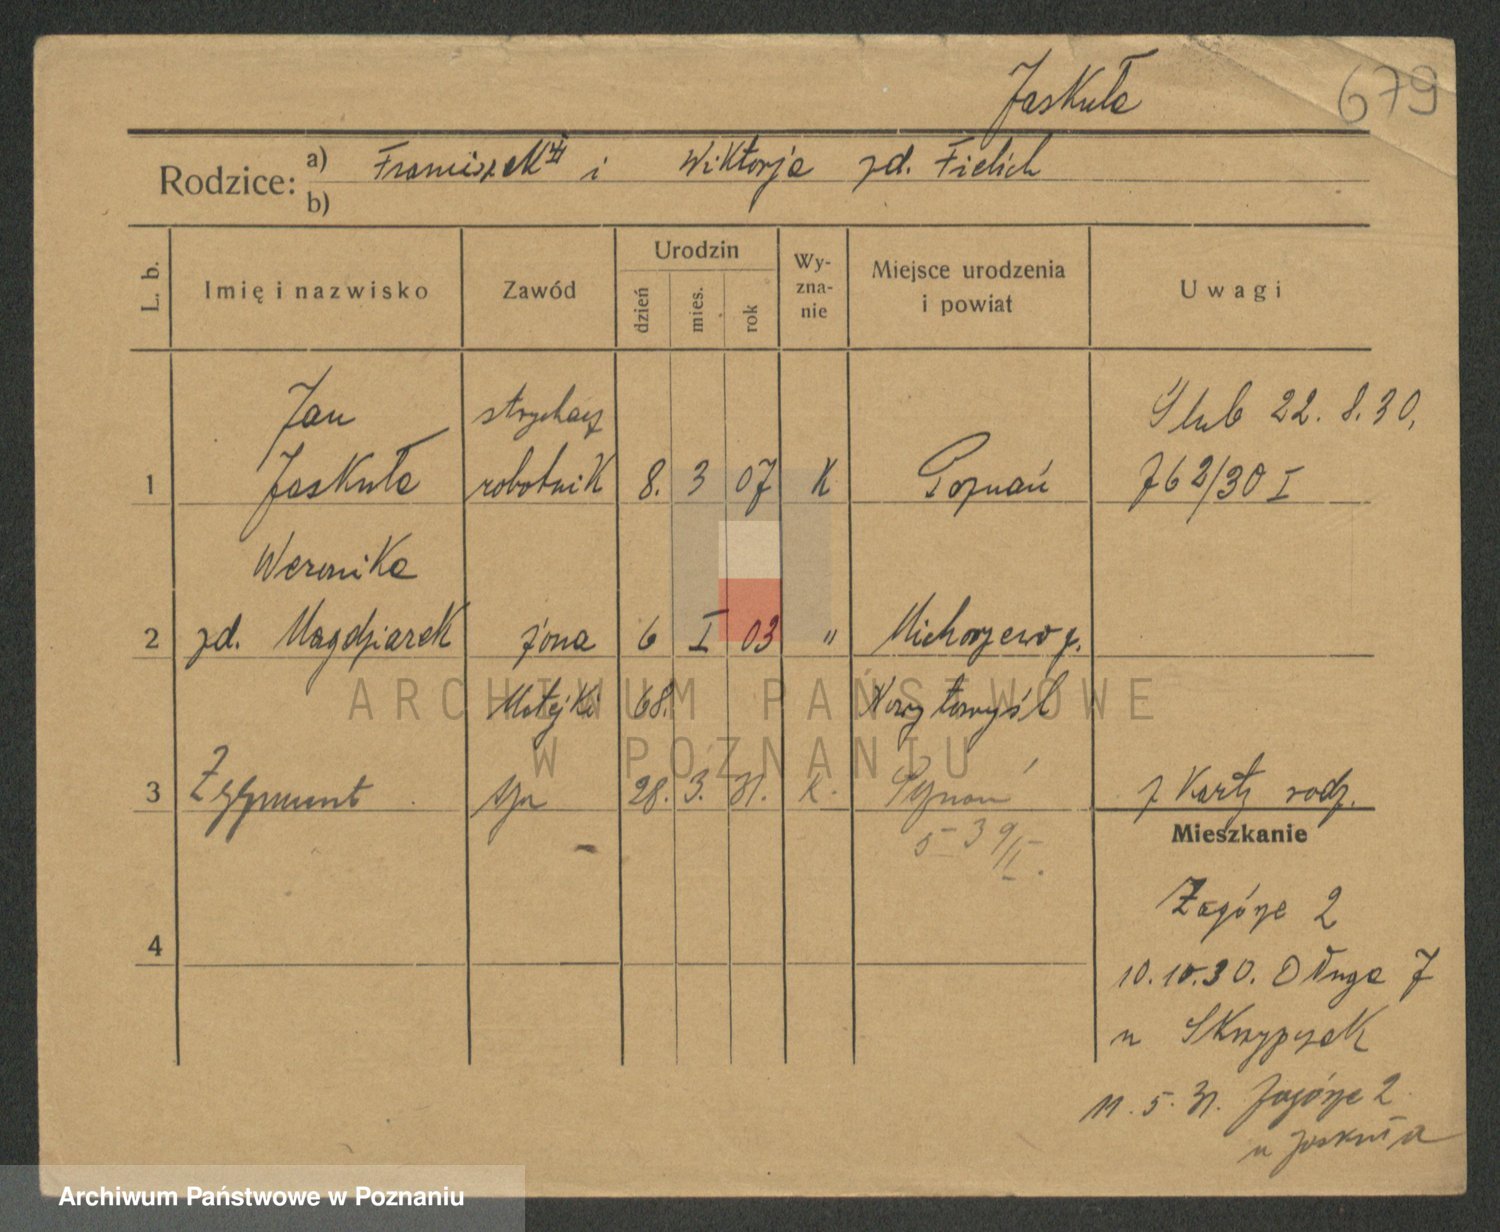 Jaskuła
679
Rodzice: a) Franciszek i Wiktorja zd. Fielich
b)
L. b.
Imię i nazwisko
Zawód
Urodzin
dzień
mies.
rok
Wy-
zna-
nie
Miejsce urodzenia
i powiat
Uwagi
Jan strycharz Ślub 22. 8. 30.
1 Jaskuła robotnik 8. 3 07 K Poznań 762/30 I
Weronika
2 zd. Magdziarek żona 6 I 03 " Michorzewo p.
Matejki 68. Nowytomyśl
3 Zygmunt syn 28. 3. 31. K. Poznań z Karty rodz.
5 39/II.
Mieszkanie
Zagórze 2
4
10.10.30. Długa 7
u Skrzypczak
11. 5. 31. Zagórze 2
u Jaskuła
ARCHIWUM PAŃSTWOWE
W POZNANIU
Archiwum Państwowe w Poznaniu